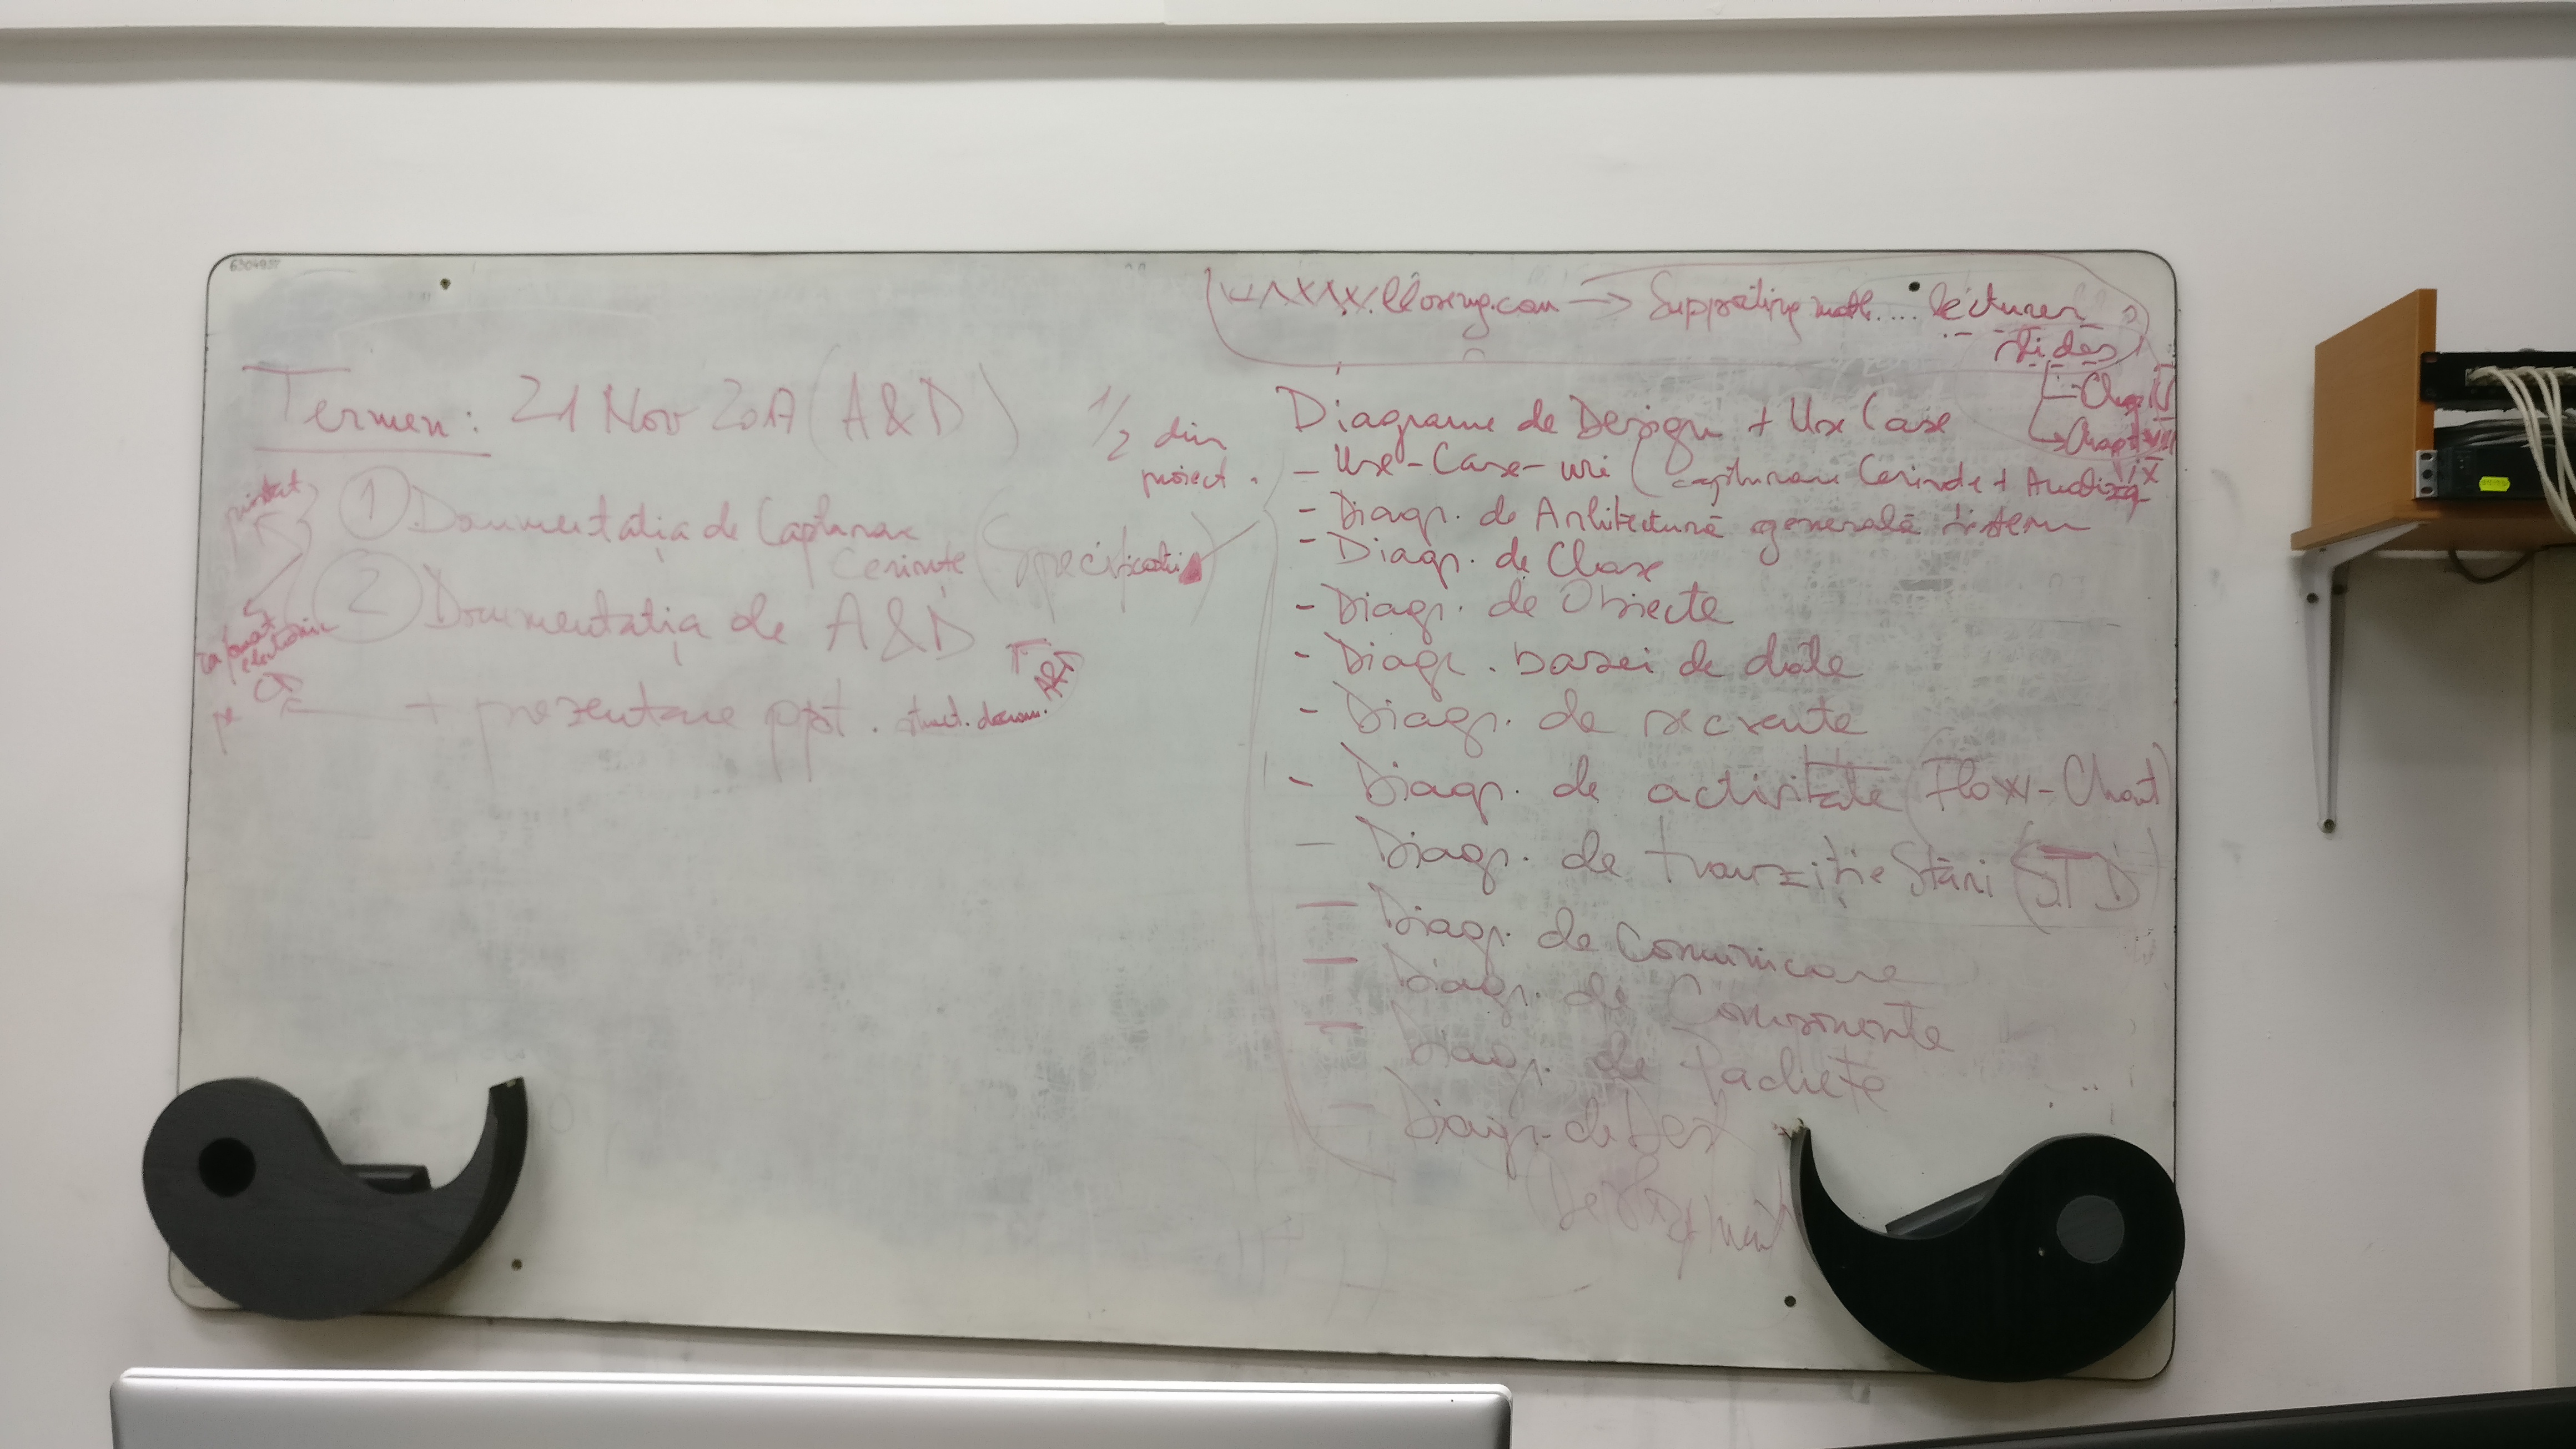 Termen: 21 Nov 2017 (A&D)
1/2 din
proiect.
printat
① Documentația de Capturare
Cerințe (Specificații)
② Documentația de A&D
în format
electronic
pe
+ prezentare ppt. struct. docum. A&D
→ Supporting mat.... lectures
slides
Chap IV
Chapt VIII
IX
Diagrame de Design + Use Case
- Use-Case-uri (capturare Cerințe + Analiză
- Diagr. de Arhitectură generală sistem
- Diagr. de Clase
- Diagr. de Obiecte
- Diagr. bazei de date
- Diagr. de secvente
- Diagr. de activitate (Flow-Chart)
- Diagr. de tranziție Stări (STD)
- Diagr. de Comunicare
- Diagr. de Componente
- Diagr. de Pachete
- Diagr. de